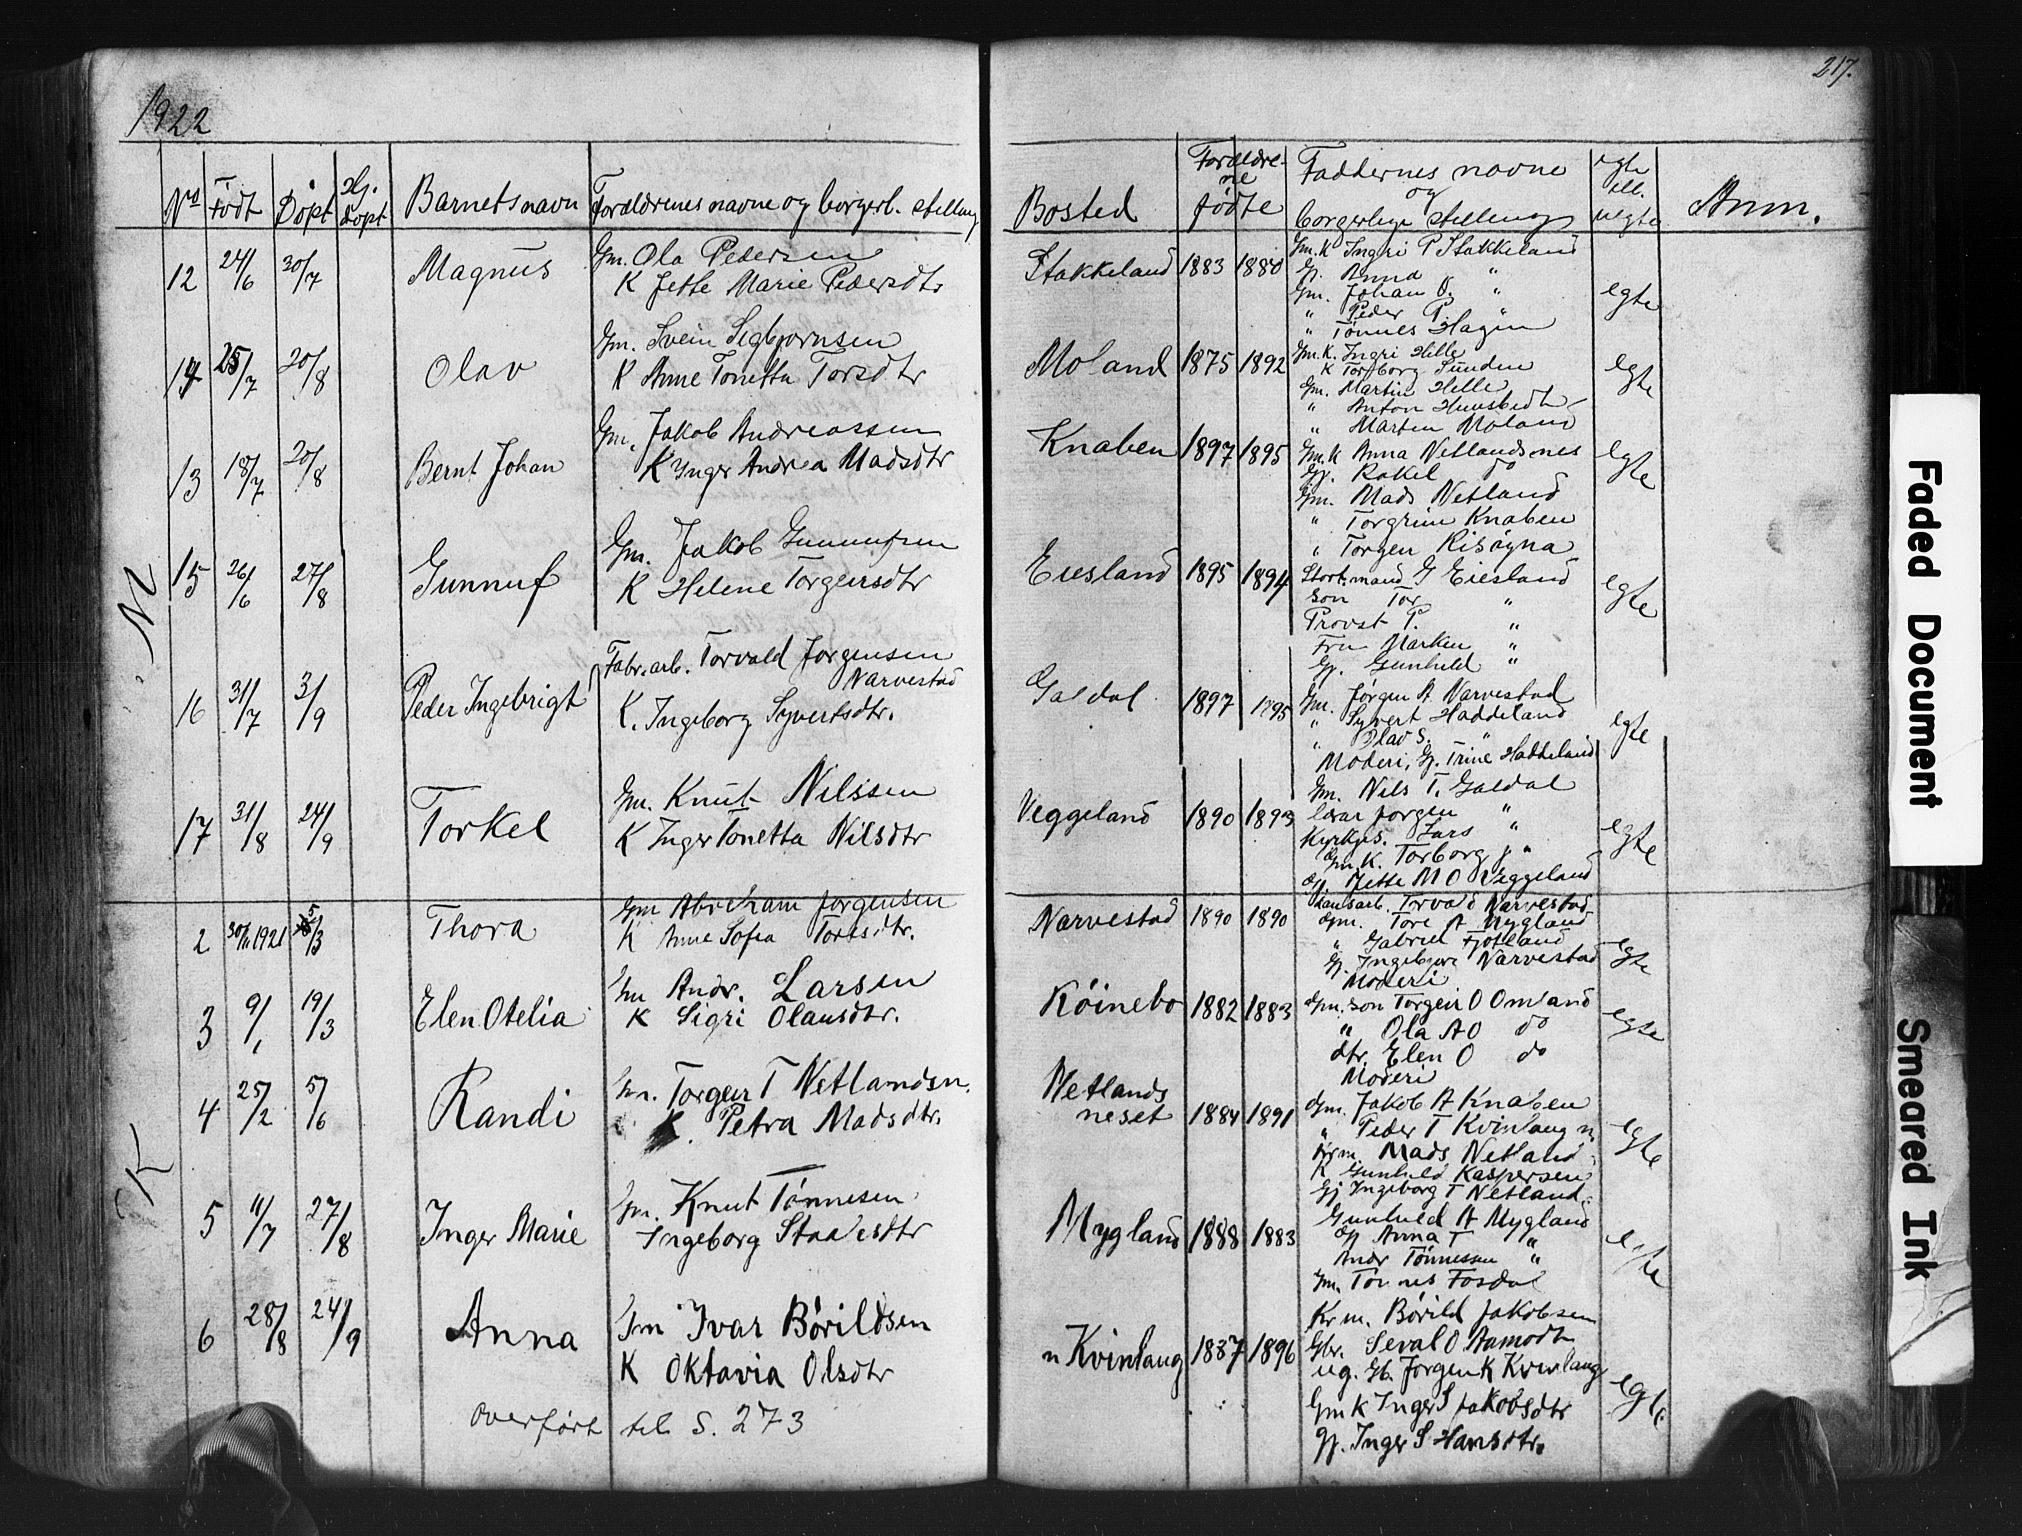 1922
217.
No Født Døpt Hj. døpt Barnets navn Forældrenes navne og borgerl. stilling Bosted Forældrene fødte Faddernes navne og borgerlige stilling egte ell. uegte Anm.
12 24/6 30/7 Magnus Gm. Ola Pedersen
K Jette Marie Pedersdtr
Stakkeland 1883 1880 Gm. K Ingri P Stakkeland
Gj. Anna "
Gm. Johan O. "
" Peder P. "
" Tønnes Hagen
egte
14 25/7 20/8 Olav Gm. Svein Sigbjørnsen
K Anne Tonetta Torsdtr
Moland 1875 1892 Gm. K. Ingri Helle
K Torborg Sunden
Gm. Martin Helle
" Anton
" Martin Moland
egte
13 18/7 20/8 Bernt Johan Gm. Jakob Andreassen
K Inger Andrea Madsdtr
Knaben 1897 1895 Gm. K Anna Netlandsnes
Gj. Rakel do
Gm. Mads Netland
" Torgrim Knaben
" Torgen Risøyna
egte
M
15 26/6 27/8 Gunnuf Gm. Jakob Gunnufsen
K Helene Torgeirsdtr
Eiesland 1895 1894 Stort.mand G Eiesland
Son Tor "
Provst P. "
Fru Marken "
Gj. Gunhild "
egte
16 31/7 3/9 Peder Ingebrigt Fabr.arb. Torvald Jørgensen
Narvestad
K. Ingeborg Syvertsdtr.
Galdal 1897 1895 Gm. Jørgen A Narvestad
" Syvert Haddeland
" Olav S. "
Moderi, Gj. Trine Haddeland
egte
17 31/8 24/9 Torkel Gm. Knut Nilssen
K Inger Tonetta Nilsdtr
Veggeland 1890 1893 Gm. Nils T. Galdal
lærar Jørgen "
Kirkjes. Lars "
Gm K. Torborg J "
Gj. Jette M O Veggeland
egte
2 30/11 1921 5/3 Thora Gm Abraham Jørgensen
K Anne Sofia Toresdtr.
Narvestad 1890 1890 Torvald Narvestad
Gm. Tore A Mygland
" Gabriel Fjotland
Gj. Ingeborg Narvestad
Moderi
egte
3 9/1 19/3 Elen Otelia Gm Andr. Larsen
K Sigri Olausdtr.
Køinebo 1882 1883 Gm. son Torgeir O Omland
" Ola AO do
dtr. Elen O do
Moderi
egte
K
4 25/2 5/6 Randi Gm. Torgeir T Netlandsn.
K. Petra Madsdtr.
Netlands
neset 1884 1891 Gm. Jakob A Knaben
" Peder T Kvinlaug n
Mads Netland
K Gunhild Kaspersen
Gj Ingeborg T Netland.
egte
5 11/7 27/8 Inger Marie Gm. Knut Tønnesen
Ingeborg Stadesdtr
Mygland 1888 1883 Gunhild A Mygland
Gj Anna T "
Andr Tønnessen "
Gm. Tønnes Fosdal
egte
6 28/8 24/9 Anna Gm Ivar Børildsen
K Oktavia Olsdtr
n Kvinlaug 1887 1896 Kr m. Børild Jakobsen
Gbr. Seval O Aamodt
ug. Gb. Jørgen K Kvinlaug
Gm K Inger S Jakobsdtr
Gj. Inger S Hansdtr.
egte
overført til S. 273
Faded Document
Smeared Ink